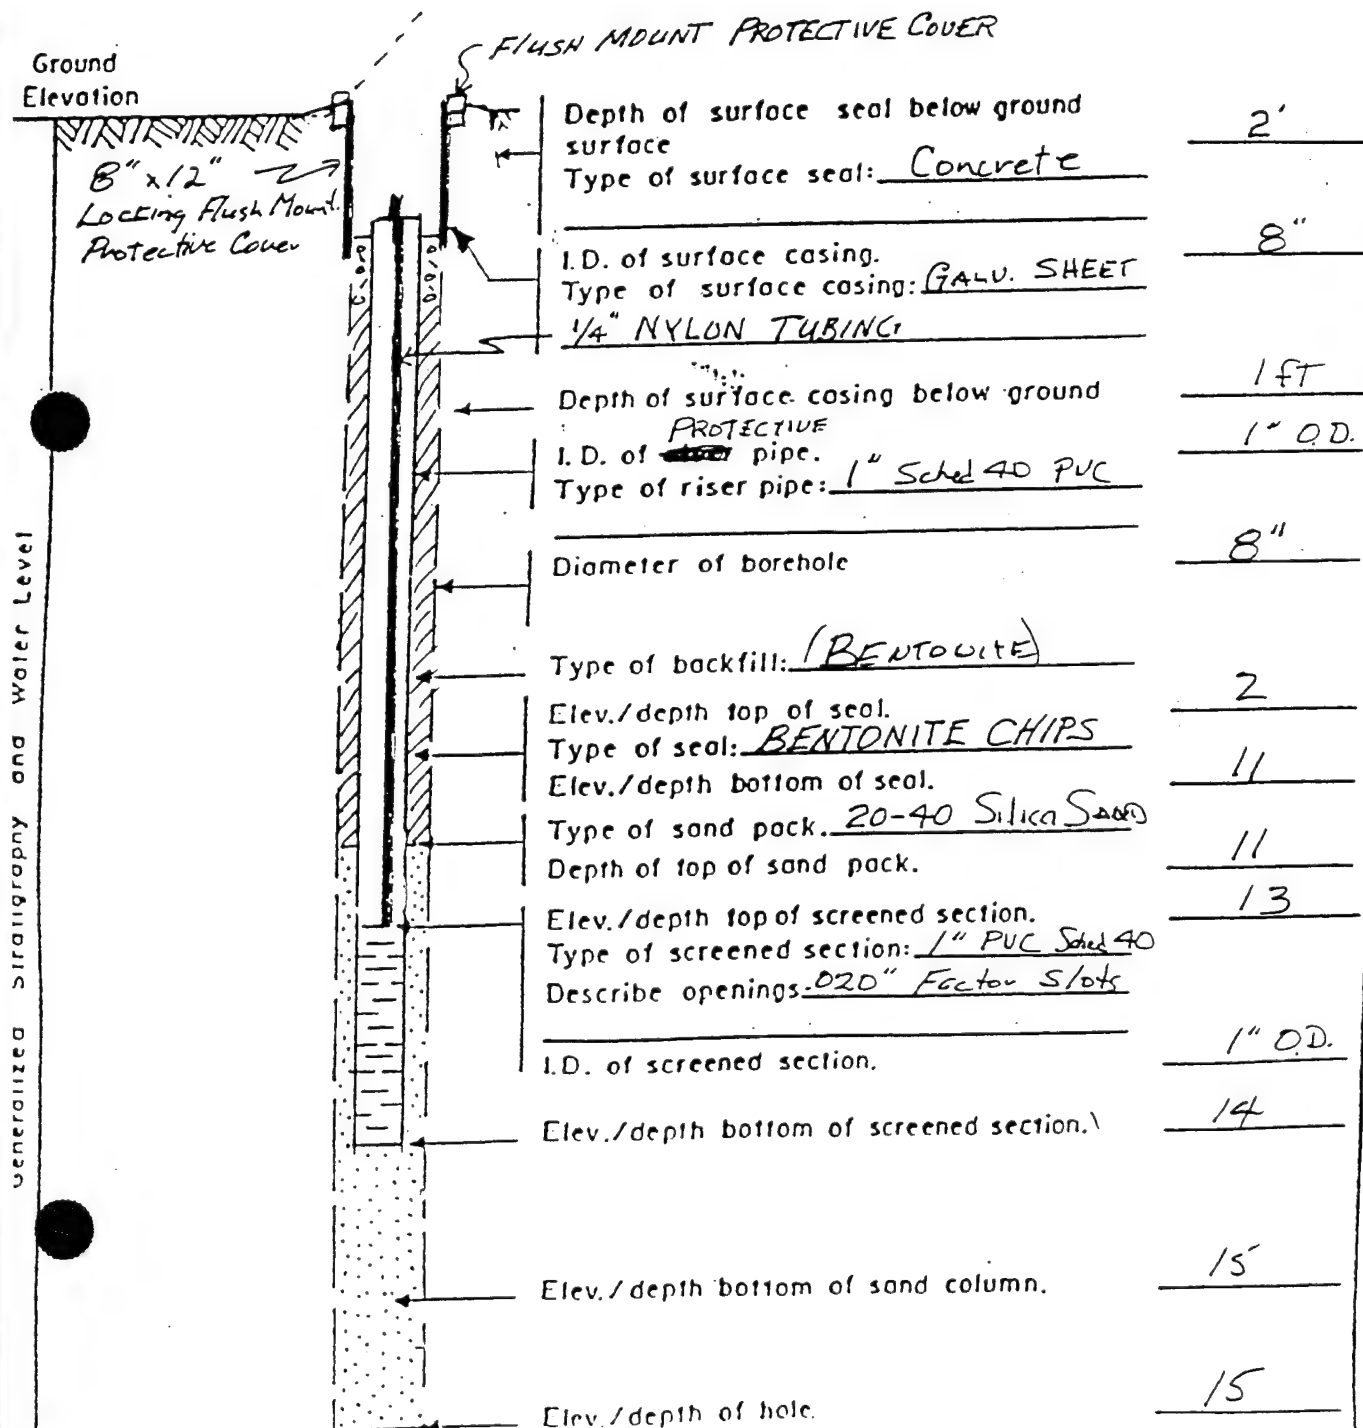 FLUSH MOUNT PROTECTIVE COVER
Ground
Elevation
8" x 12"
Locking Flush Mount
Protective Cover
Depth of surface seal below ground
surface 2'
Type of surface seal: Concrete
I.D. of surface casing. 8"
Type of surface casing: GALV. SHEET
1/4" NYLON TUBING
Depth of surface casing below ground 1 FT
PROTECTIVE
I.D. of pipe. 1" O.D.
Type of riser pipe: 1" Sched 40 PVC
Diameter of borehole 8"
Type of backfill: (BENTONITE)
Elev./depth top of seal. 2
Type of seal: BENTONITE CHIPS
Elev./depth bottom of seal. 11
Type of sand pack. 20-40 Silica SAND
Depth of top of sand pack. 11
Elev./depth top of screened section. 13
Type of screened section: 1" PVC Sched 40
Describe openings .020" Factor Slots
I.D. of screened section. 1" O.D.
Elev./depth bottom of screened section. 14
Elev./depth bottom of sand column. 15
Elev./depth of hole. 15
Generalized Stratigraphy and Water Level